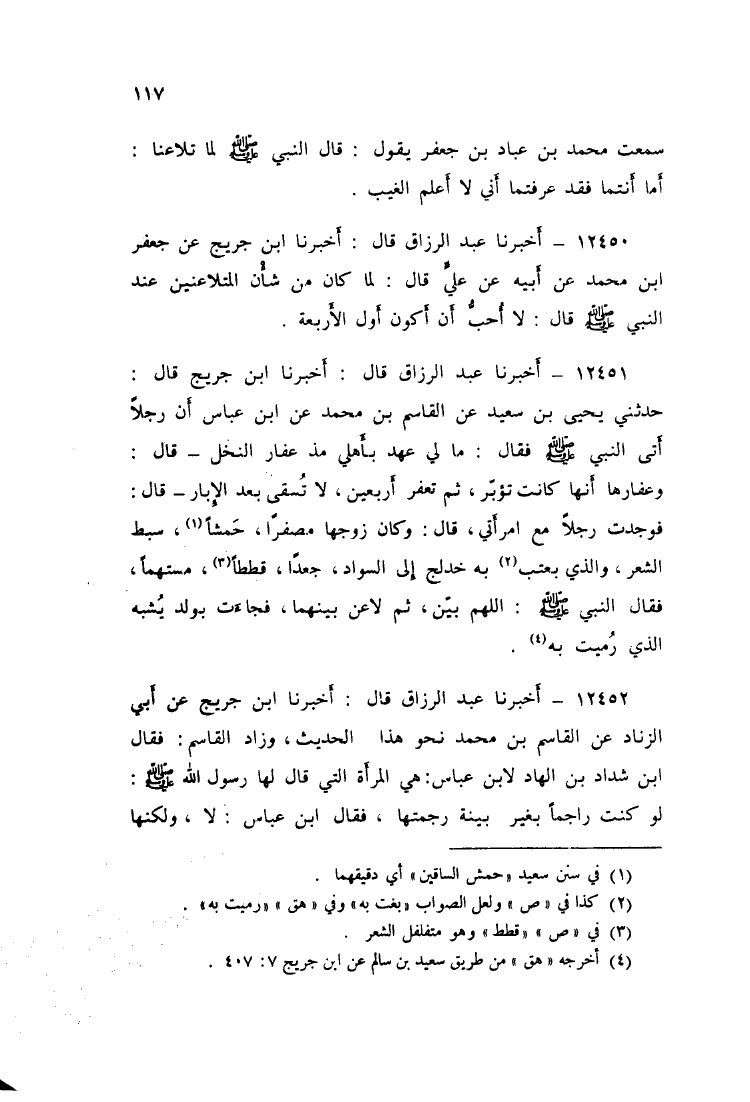 ١١٧
سمعت محمد بن عباد بن جعفر يقول : قال النبي ﷺ لما تلاعنا :
أما أنتما فقد عرفتما أني لا أعلم الغيب .
١٢٤٥٠ – أخبرنا عبد الرزاق قال : أخبرنا ابن جريج عن جعفر
ابن محمد عن أبيه عن عليٍّ قال : لما كان من شأن المتلاعنين عند
النبي ﷺ قال : لا أُحبُّ أن أكون أول الأربعة .
١٢٤٥١ – أخبرنا عبد الرزاق قال : أخبرنا ابن جريج قال :
حدثني يحيى بن سعيد عن القاسم بن محمد عن ابن عباس أن رجلاً
أتى النبي ﷺ فقال : ما لي عهد بأهلي مذ عفار النخل – قال :
وعفارها أنها كانت تؤبّر ، ثم تعفر أربعين ، لا تُسقى بعد الإبار – قال :
فوجدت رجلاً مع امرأتي ، قال : وكان زوجها مصفرّا ، حَمشاً(١) ، سبط
الشعر ، والذي بعتب(٢) به خدلج إلى السواد ، جعدًا ، قططاً(٣) ، مستهماً ،
فقال النبي ﷺ : اللهم بيّن ، ثم لاعن بينهما ، فجاءت بولد يُشبه
الذي رُميت به(٤) .
١٢٤٥٢ – أخبرنا عبد الرزاق قال : أخبرنا ابن جريج عن أبي
الزناد عن القاسم بن محمد نحو هذا الحديث ، وزاد القاسم : فقال
ابن شداد بن الهاد لابن عباس : هي المرأة التي قال لها رسول الله ﷺ :
لو كنت راجماً بغير بينة رجمتها ، فقال ابن عباس : لا ، ولكنها
(١) في سنن سعيد «حمش الساقين» أي دقيقهما .
(٢) كذا في «ص» ولعل الصواب «بغت به» وفي «هق» «رميت به» .
(٣) في «ص» «قطط» وهو متفلفل الشعر .
(٤) أخرجه «هق» من طريق سعيد بن سالم عن ابن جريج ٧: ٤٠٧ .